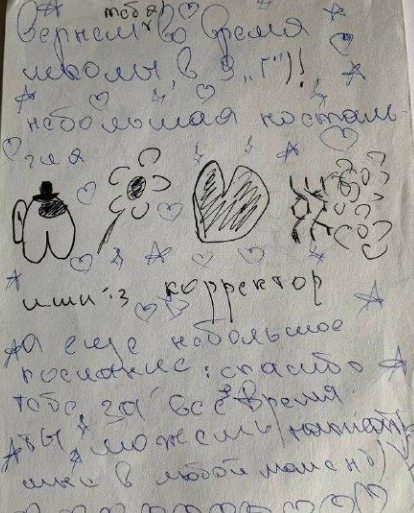 тебя
вернем во время
школы, в 9 „Г“)!
небольшаяносталь-
гия
корректор
а еще небольшое
послание: спасибо
тебе за всё время.
ты можешь написать
мне в любой момент)